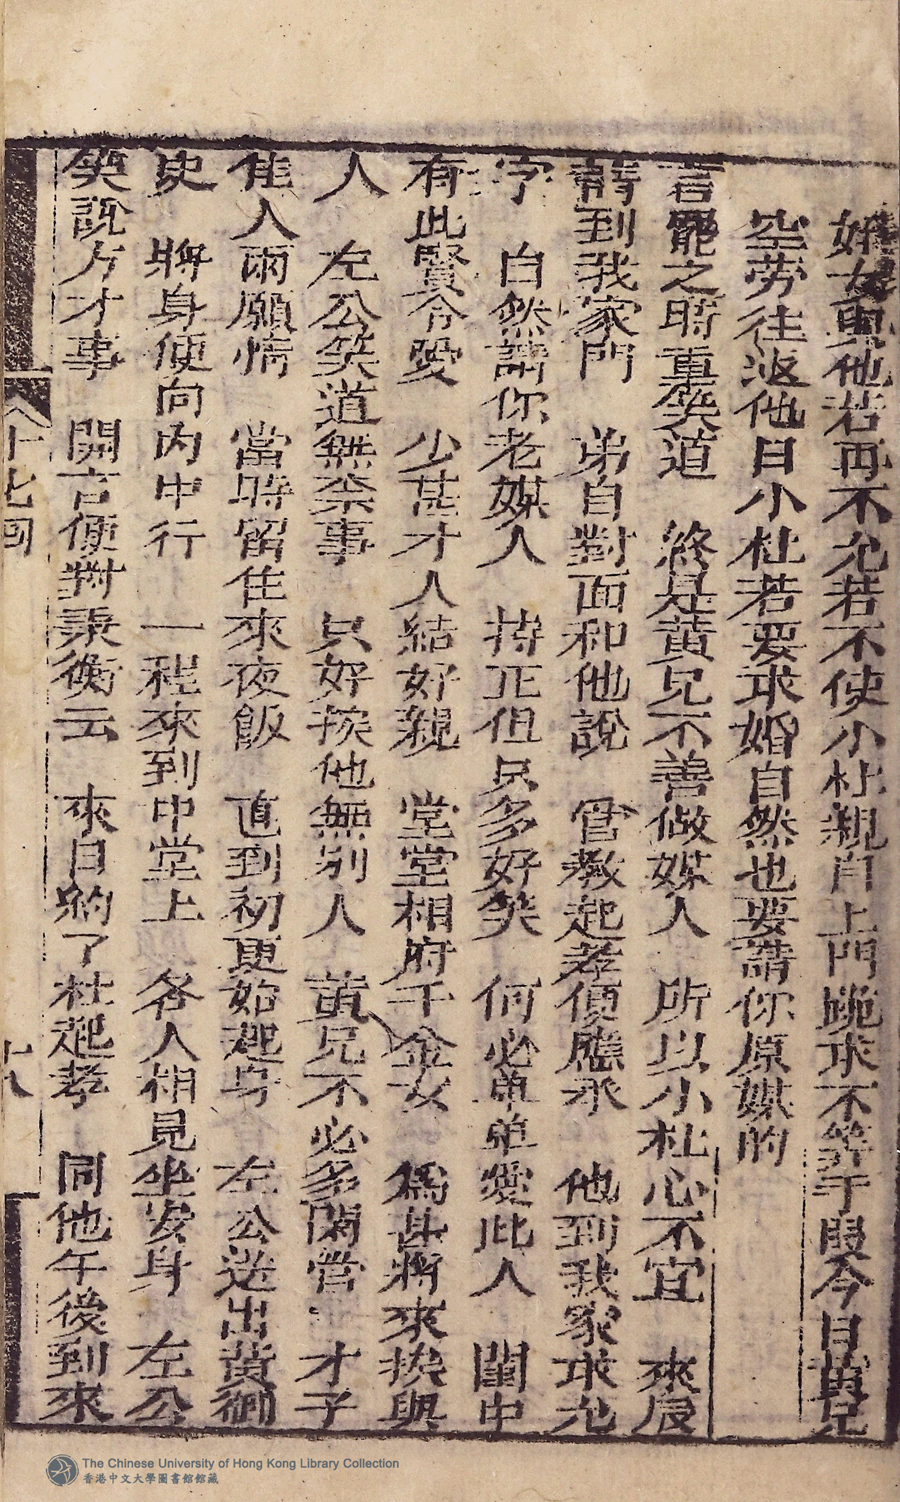 女與他若再不允若不使小杜親自上門跪求不算于叚今日黄兄
空劳往返他日小杜若要求婚自然也要請你原媒的
言罷之時重笑道　終是黄兄不善做媒人　所以小杜心不宜　來辰
到我家門　弟自對面和他說　管教起孝便應承　他到我家求允
字　自然請你老媒人　持正但只多好笑　何必单单愛此人　閨中
有此賢令愛　少甚才人結好親　堂堂相府千金女　爲甚將來挨與
人　左公笑道無奈事　只好挨他無别人　黄兄不必多閑管　才子
佳人兩願情　當時留住來夜飯　直到初更始起身　左公送出黄御
史　將身便向内中行　一程來到中堂上　各人相見坐安身　左公
笑說方才事　開言便對秉衡云　來日約了杜起孝　同他午後到來
十七回
十八
The Chinese University of Hong Kong Library Collection
香港中文大學圖書館館藏